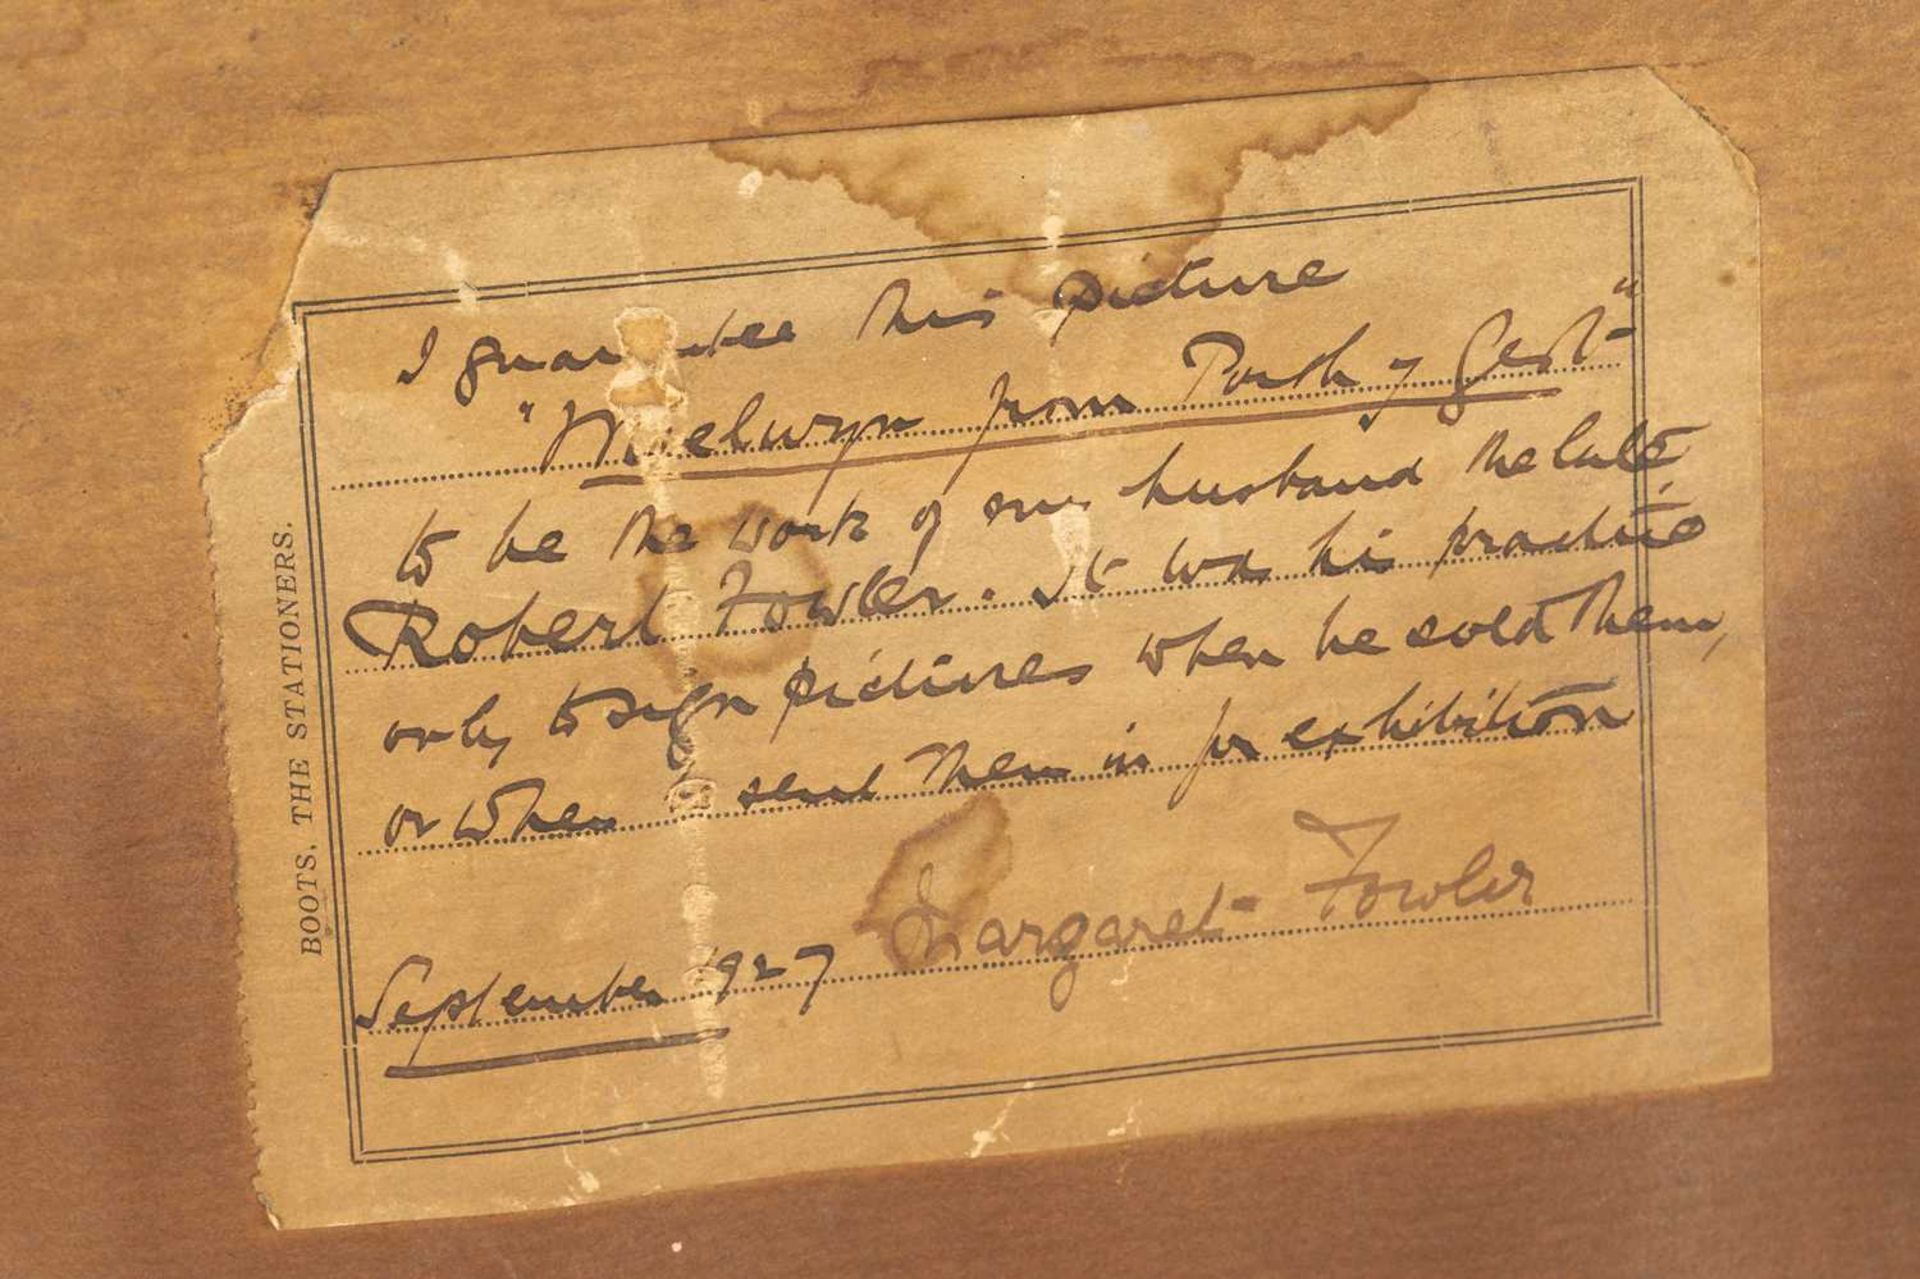 I guarantee this picture
"Moelwyn from Porth y Gest"
to be the work of my husband the late
Robert Fowler. It was his practice
only to sign pictures when he sold them,
or when sent them in for exhibition
Margaret Fowler
September 1927
BOOTS, THE STATIONERS.